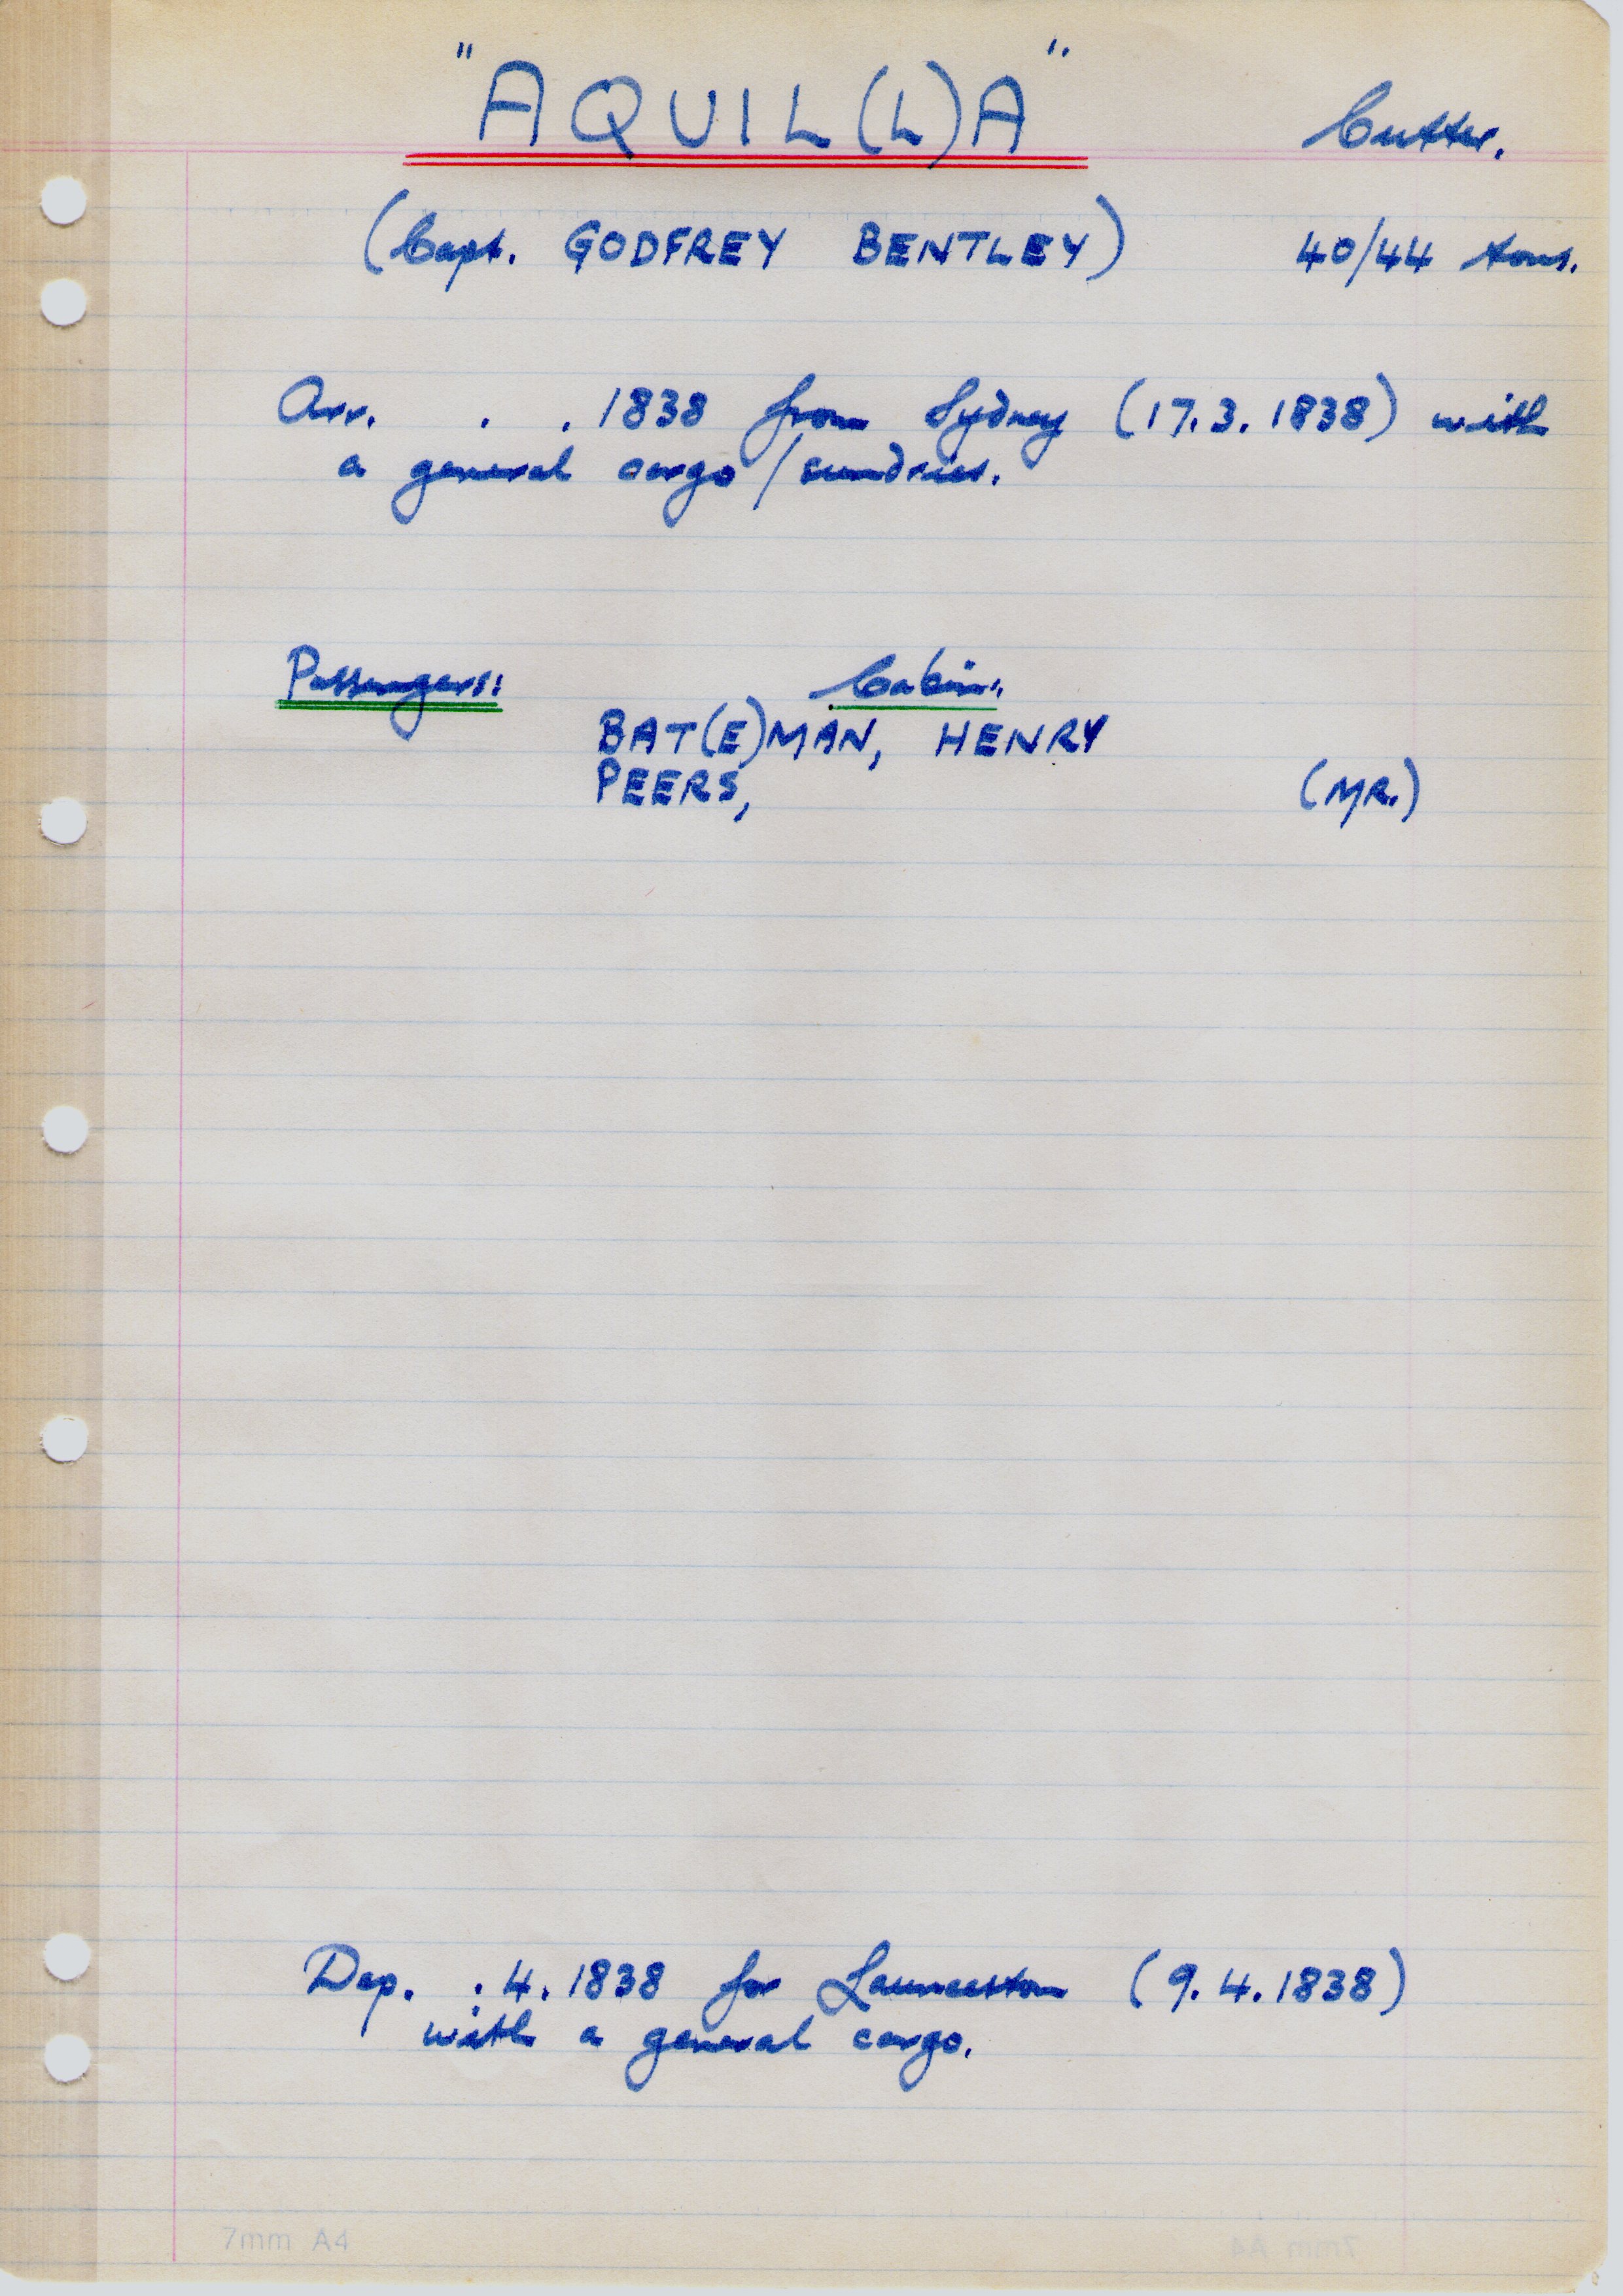 "AQUIL(L)A" Cutter.
(Capt. GODFREY BENTLEY) 40/44 tons.
Arr. . . 1838 from Sydney (17.3.1838) with
a general cargo/sundries.
Passengers: Cabin:
BAT(E)MAN, HENRY
PEERS, (MR.)
Dep. .4.1838 for Launceston (9.4.1838)
with a general cargo.
7mm A4